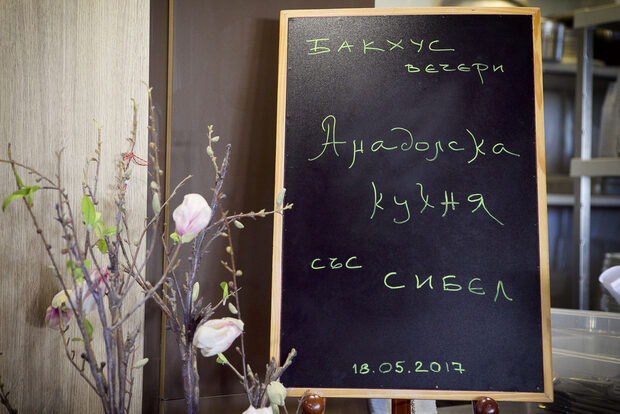 БАКХУС
ВЕЧЕРИ
Анадолска
кухня
със
СИБЕЛ
18.05.2017